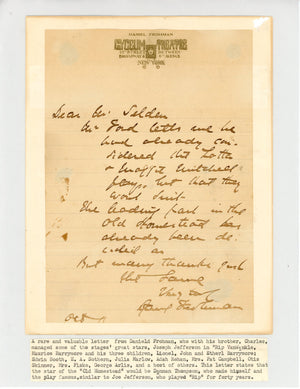 DANIEL FROHMAN
LYCEUM THEATRE
NEW YORK
Dear Mr Selden
Mr Ford tells me he
had already con-
sidered the Lotta
& Maggie Mitchell
plays, but that they
wont suit -
The leading part in the
Old Homestead has
already been de-
cided on
But many thanks just
the same
Daniel Frohman
A rare and valuable letter from Daniel Frohman, who with his brother, Charles,
managed some of the stages' great stars, Joseph Jefferson in "Rip VanWinkle,
Maurice Barrymore and his three children, Lionel, John and Ethel Barrymore;
Edwin Booth, E. A. Sothern, Julia Marlow, Adah Rehan, Mrs. Pat Campbell, Otis
Skinner, Mrs. Fiske, George Arlis, and a host of others. This letter states that
the star of the "Old Homestead" would be Denman Thompson, who made himself and
the play famous, similar to Joe Jefferson, who played "Rip" for forty years.